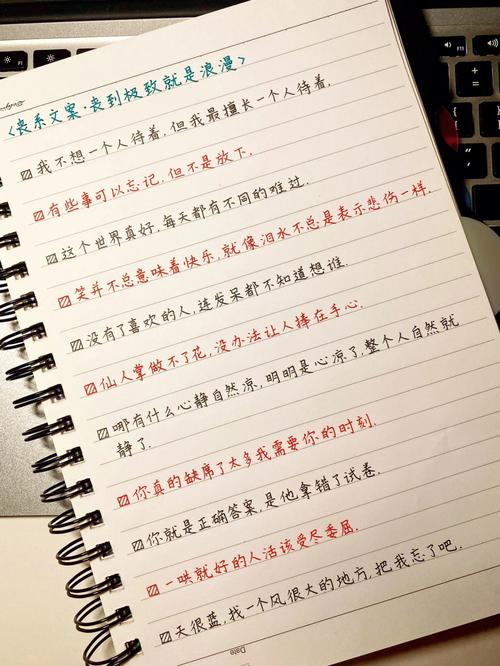 《丧系文案·丧到极致就是浪漫》
我不想一个人待着,但我最擅长一个人待着.
有些事可以忘记,但不是放下.
这个世界真好,每天都有不同的难过.
笑并不总意味着快乐,就像泪水不总是表示悲伤一样.
没有了喜欢的人,连发呆都不知道想谁.
仙人掌做不了花,没办法让人捧在手心.
哪有什么心静自然凉,明明是心凉了,整个人自然就
静了.
你真的缺席了太多我需要你的时刻.
你就是正确答案,是他拿错了试卷.
一哄就好的人活该受尽委屈.
天很蓝,找一个风很大的地方,把我忘了吧.
Date